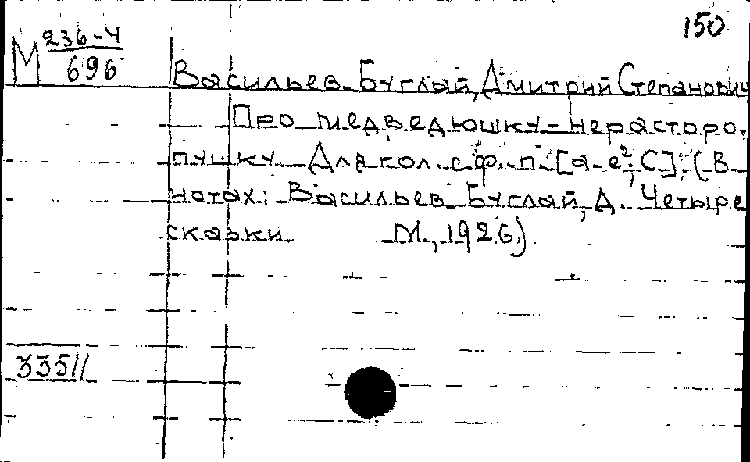 150
М 236-4
696
Васильев-Буглай, Дмитрий Степанович
Про медведюшку-нерасторо-
пушку. Для кол. с ф.-п. [a-e², C]. (В
нотах: Васильев-Буглай, Д. Четыре
сказки М., 1926).
33511